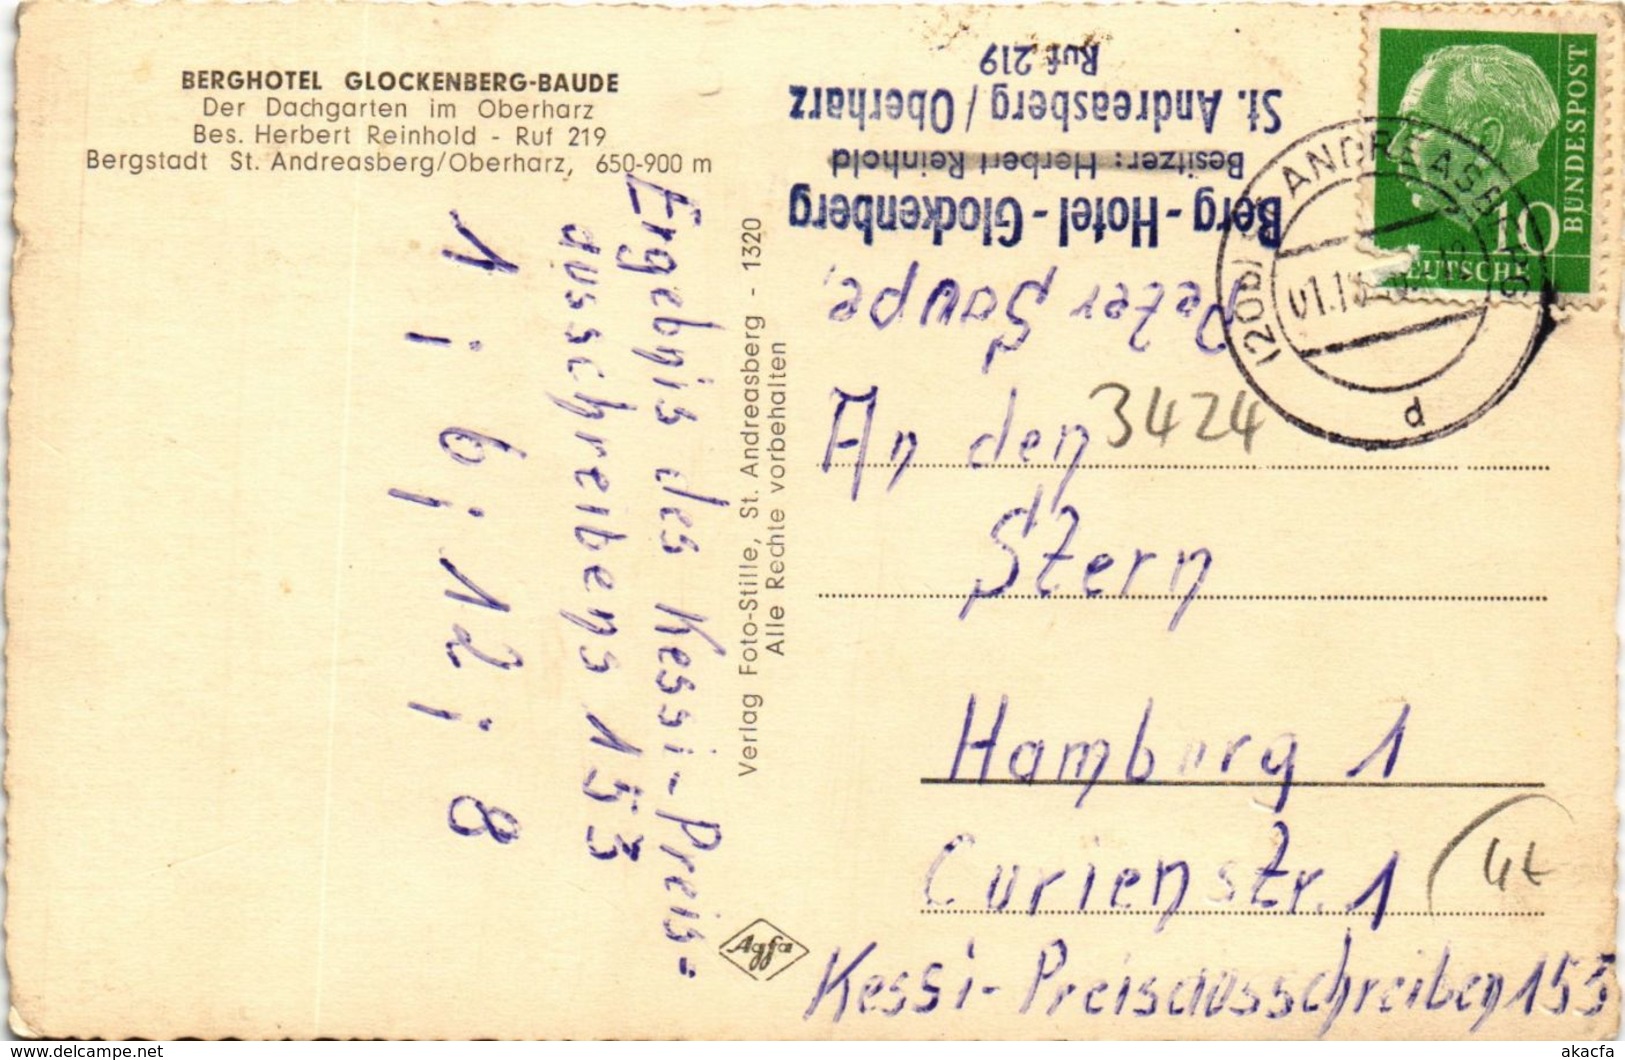 BERGHOTEL GLOCKENBERG-BAUDE
Der Dachgarten im Oberharz
Bes. Herbert Reinhold - Ruf 219
Bergstadt St. Andreasberg/Oberharz, 650-900 m
Ergebnis des Kessi-Preis-
ausschreibens 153
1 ; 6 ; 12 ; 8
Verlag Foto-Stille, St. Andreasberg - 1320
Alle Rechte vorbehalten
Agfa
Peter
Berg-Hotel-Glockenberg
Besitzer: Herbert Reinhold
St. Andreasberg / Oberharz
Ruf 219
BUNDESPOST
10
DEUTSCHE
(20b) ST. ANDREASBERG
d
An den
3424
Stern
Hamburg 1
Curienstr. 1
Kessi-Preisausschreiben 153
akacfa
delcampe.net